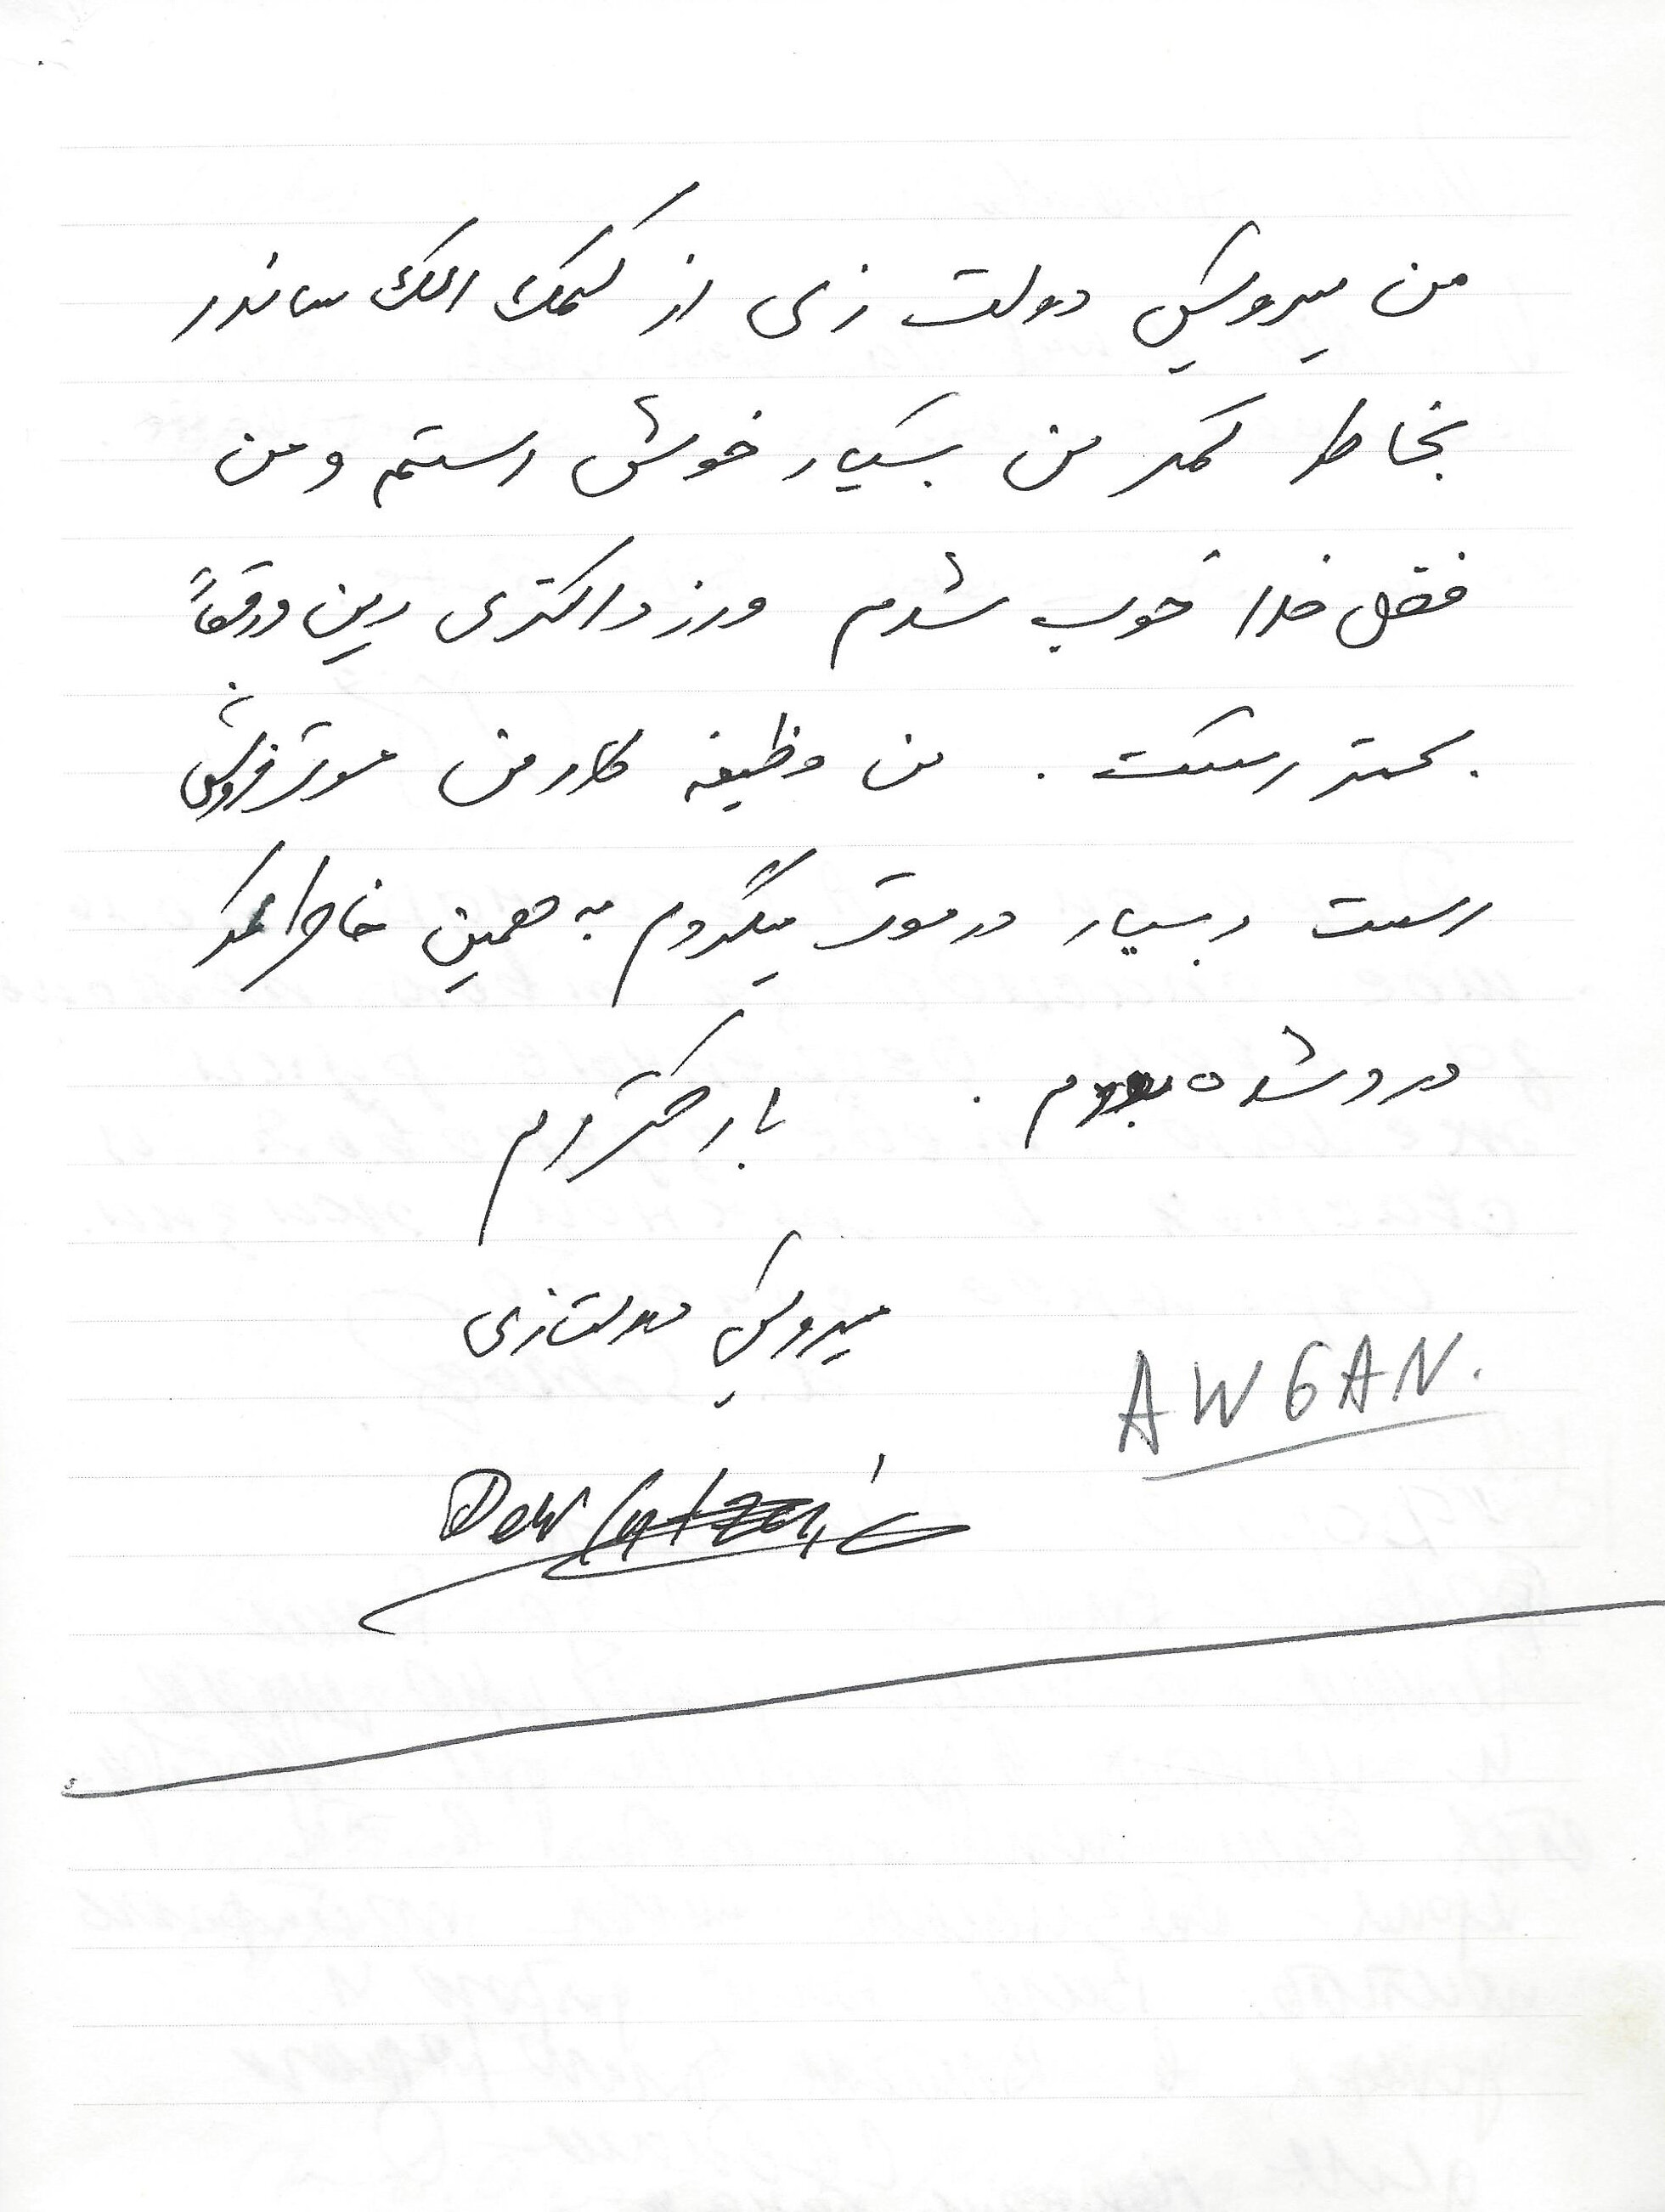 من میرویس دولت زی از کمک الکساندر
بخاطر کمر من بسیار خوش استم و من
فضل خدا خوب شدم و از داکتری این واقعاً
بهتر است . من وظیفه کار من موتر فروشی
است و بسیار در موتر میگردم به همین خاطر کمر
درد شده بودم . با احترام
میرویس دولت زی
AWGAN.
Dewlatzai